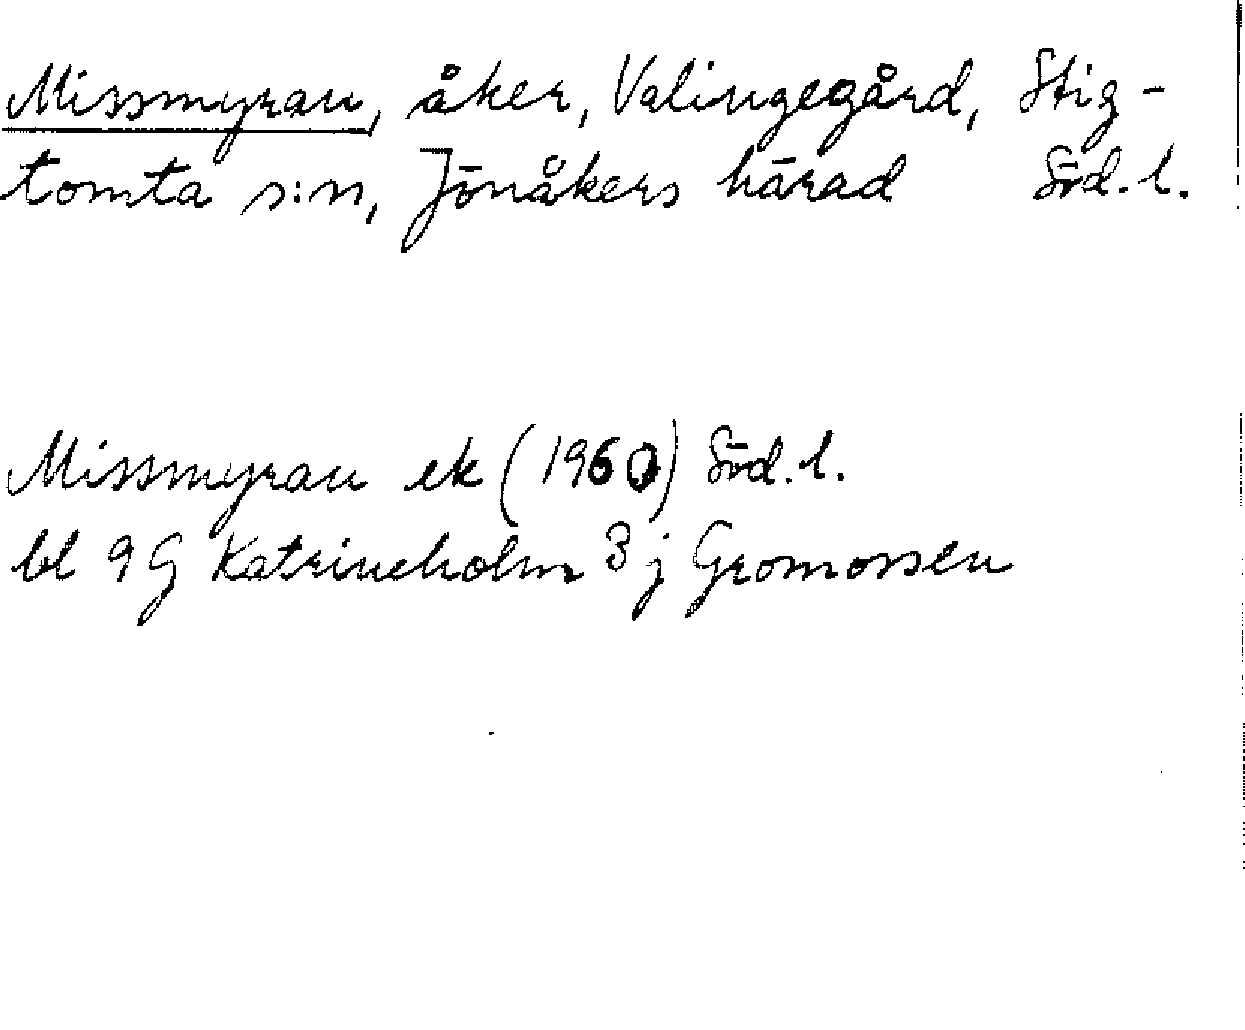 Missmyran, åker, Valingegård, Stig-
tomta s:n, Jönåkers härad Söd. l.
Missmyran ek (1960) Söd. l.
bl 9G Katrineholm 3j Gromossen